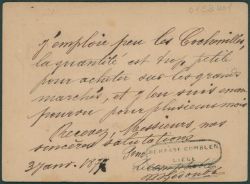 j'emploie peu les Cochenilles,
la quantité est trop petite
pour acheter sur les grands
marchés, et j'en suis encore
pourvu pour plusieurs mois
Recevez, Messieurs, nos
sincères salutations
3 janv. 1877
LIEGE